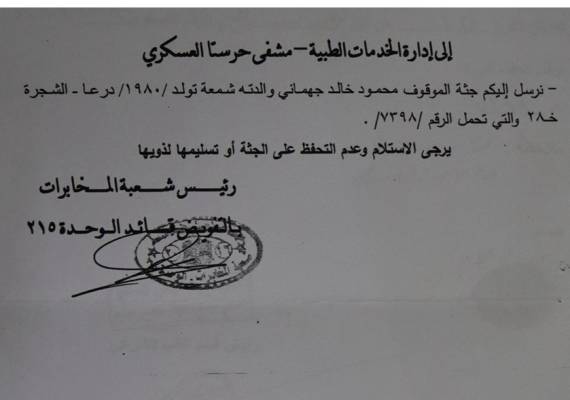 إلى إدارة الخدمات الطبية – مشفى حرستا العسكري
– نرسل إليكم جثة الموقوف محمود خالد جهماني والدته شمعة تولد /١٩٨٠/ درعا – الشجرة
خـ٢٨ والتي تحمل الرقم /٧٣٩٨/ .
يرجى الاستلام وعدم التحفظ على الجثة أو تسليمها لذويها
رئيس شعبة المخابرات
بالتفويض قائد الوحدة ٢١٥